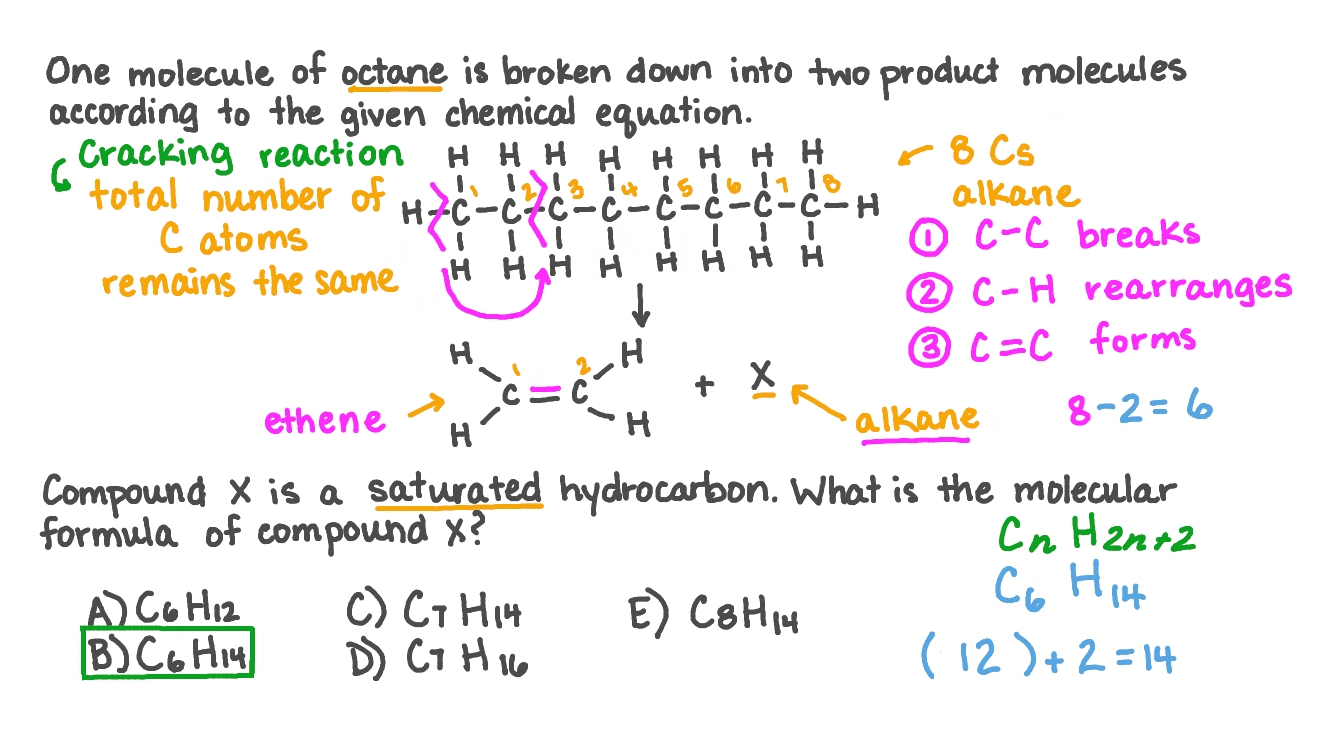 One molecule of octane is broken down into two product molecules
according to the given chemical equation.
Cracking reaction
total number of
C atoms
remains the same
H H H H H H H H
1 2 3 4 5 6 7 8
H-C-C-C-C-C-C-C-C-H
H H H H H H H H
8 Cs
alkane
① C-C breaks
② C-H rearranges
③ C=C forms
H H
1 2
C=C
H H
+ X
ethene
alkane
8-2=6
Compound X is a saturated hydrocarbon. What is the molecular
formula of compound X?
CnH2n+2
C6H14
(12)+2=14
A) C6H12
B) C6H14
C) C7H14
D) C7H16
E) C8H14